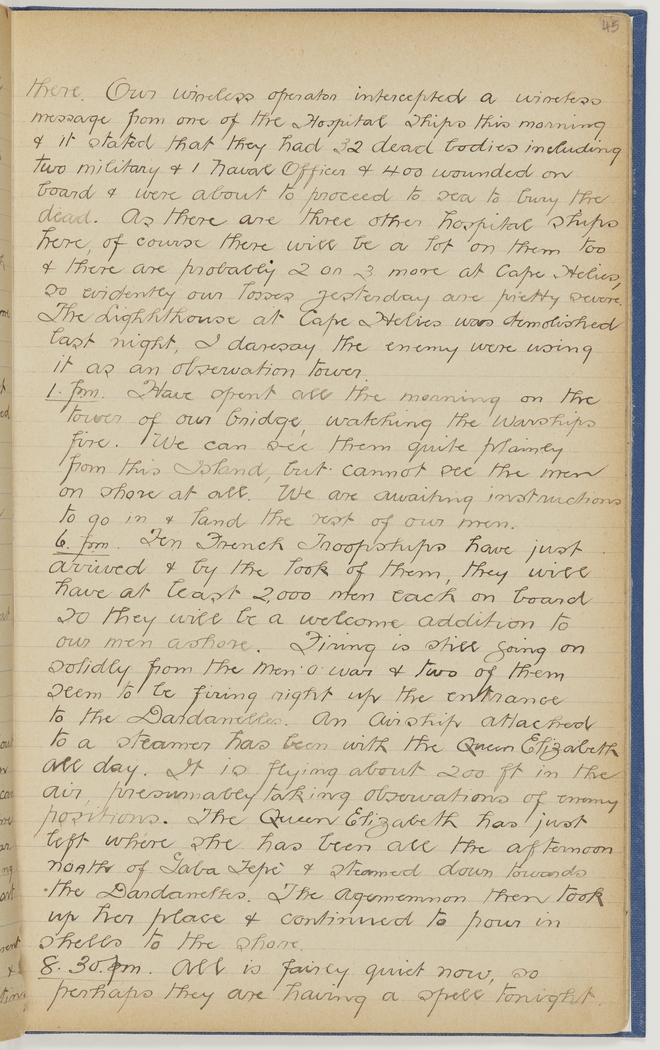 45
there. Our wireless operator intercepted a wireless
message from one of the Hospital Ships this morning
& it stated that they had 32 dead bodies including
two military & 1 Naval Officer & 400 wounded on
board & were about to proceed to sea to bury the
dead. As there are three other hospital ships
here, of course there will be a lot on them too
& there are probably 2 or 3 more at Cape Helies,
so evidently our losses yesterday are pretty severe.
The Lighthouse at Cape Helies was demolished
last night, I daresay the enemy were using
it as an observation tower.
1. pm. Have spent all the morning on the
tower of our bridge, watching the Warships
fire. We can see them quite plainly
from this Island, but cannot see the men
on shore at all. We are awaiting instructions
to go in & land the rest of our men.
6. pm. Ten French Troopships have just
arrived & by the look of them, they will
have at least 2,000 men each on board
so they will be a welcome addition to
our men ashore. Firing is still going on
solidly from the Men o' war & two of them
seem to be firing right up the entrance
to the Dardanelles. An Airship attached
to a steamer has been with the Queen Elizabeth
all day. It is flying about 200 ft in the
air, presumably taking observations of enemy
positions. The Queen Elizabeth has just
left where she has been all the afternoon
north of Gaba Tepe & steamed down towards
the Dardanelles. The Agememnon then took
up her place & continued to pour in
shells to the shore.
8. 30. pm. All is fairly quiet now, so
perhaps they are having a spell tonight.